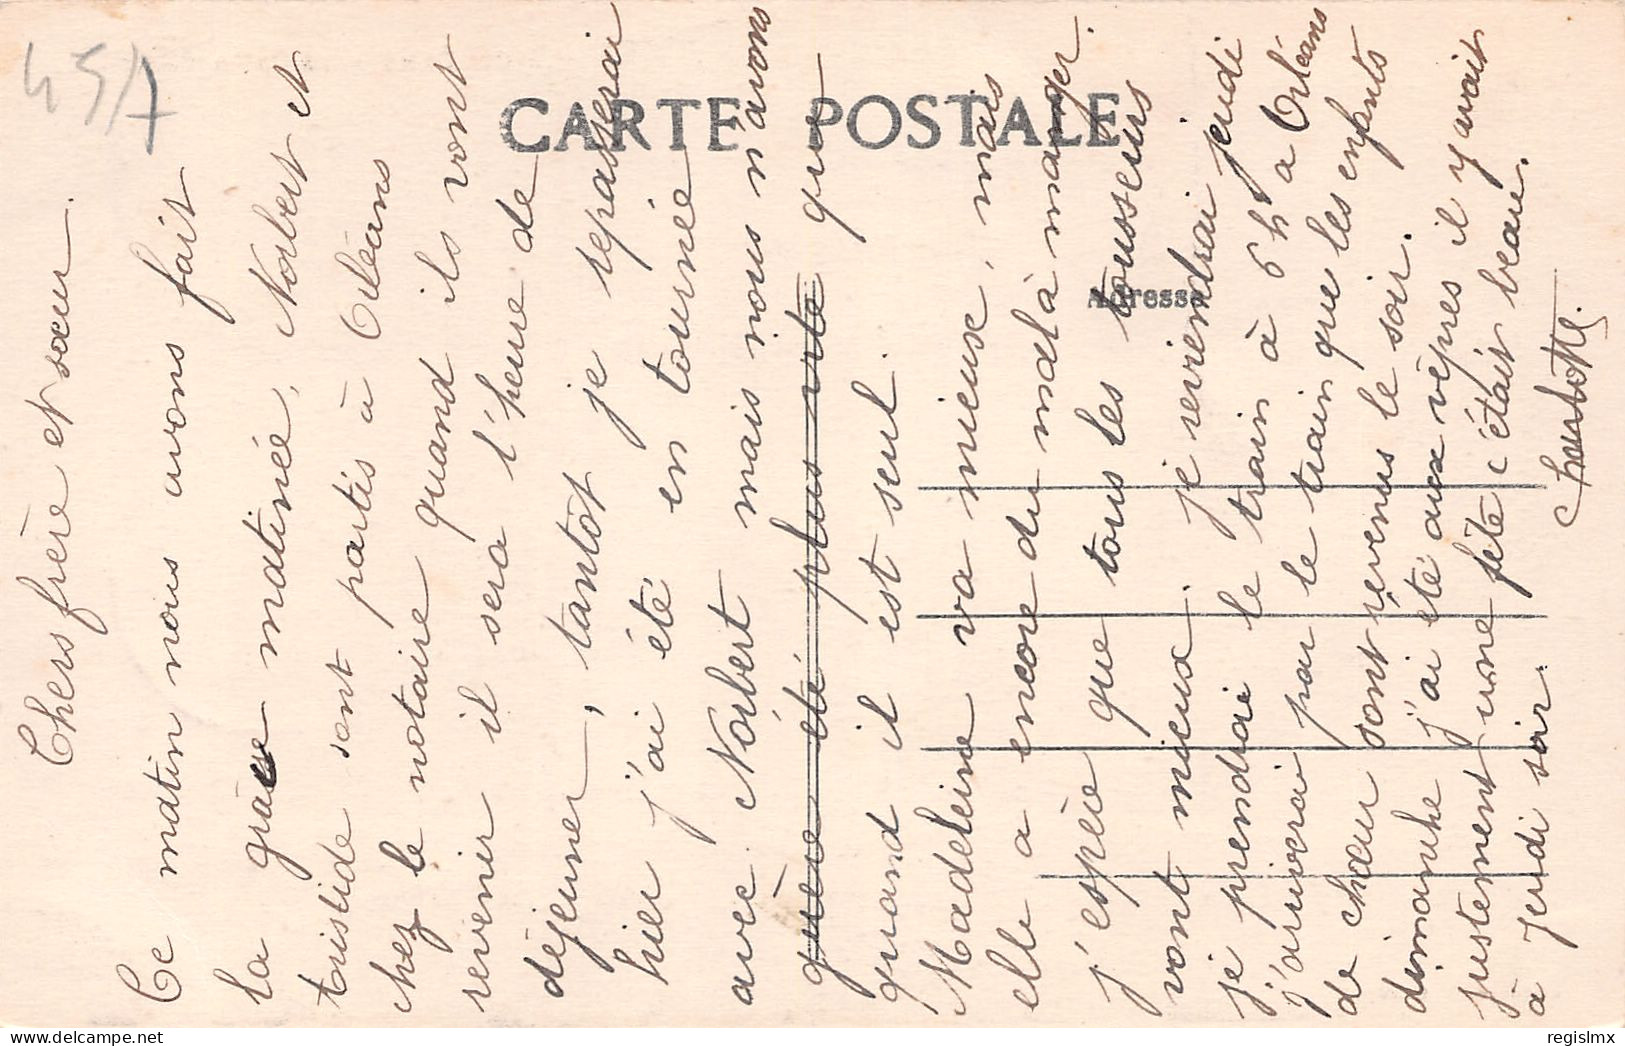 45/7
CARTE POSTALE
Adresse
Chers frère et sœur.
Ce matin nous avons fait
la grasse matinée, Norbert et
sont partis à Orléans
chez le notaire quand ils vont
revenir il sera l'heure de
déjeuner, tantôt je repasserai
hier j'ai été en tournée
avec Norbert mais nous n'avons
guère été plus vite que
quand il est seul.
Madeleine va mieux, mais
elle a encore du mal à manger.
j'espère que tous les tousseurs
vont mieux. je reviendrai jeudi
je prendrai le train à 6 h a Orléans
j'arriverai par le train que les enfants
de chœur sont revenus le soir.
dimanche j'ai été aux vêpres il y avait
justement une fête c'était beau.
à jeudi soir.
regislmx